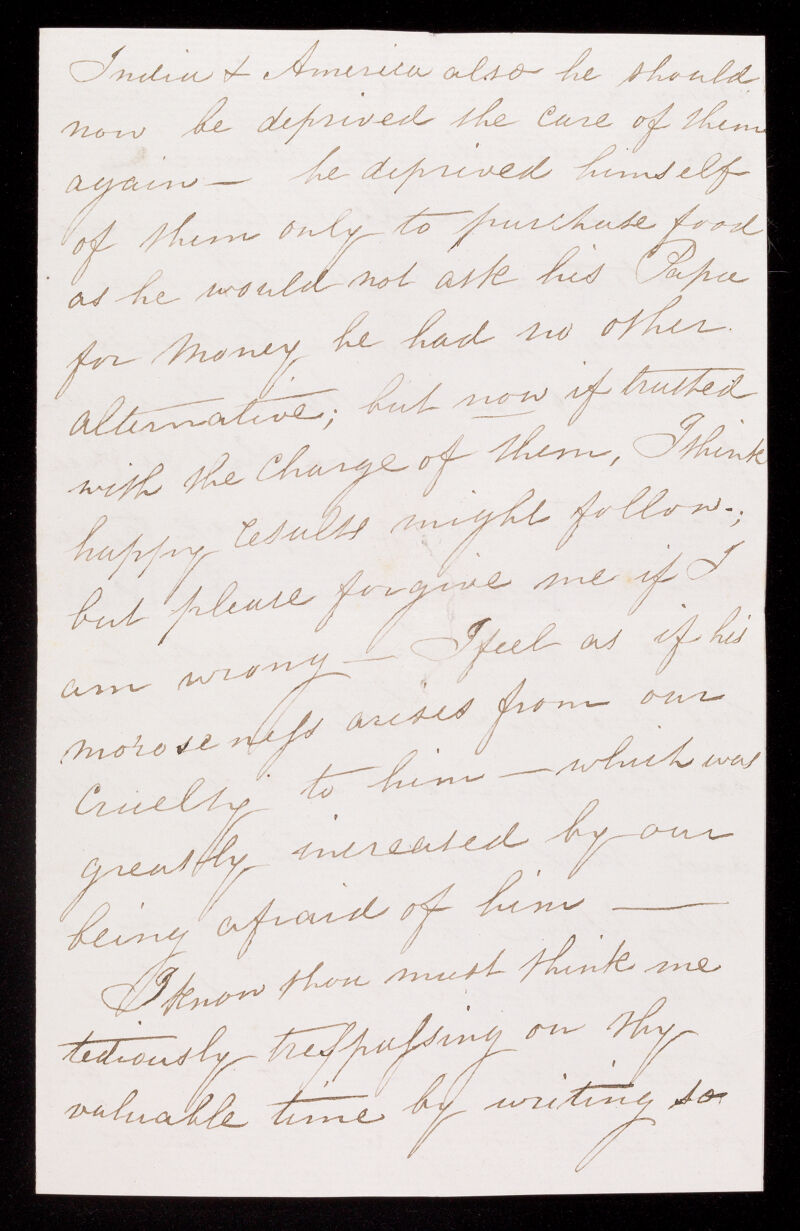 India & America also he should
now be deprived the care of them
again— he deprived himself
of them only to purchase food
as he would not ask his Papa
for money he had no other
alternative; but now if trusted
with the charge of them, I think
happy results might follow—;
but please forgive me if I
am wrong — I feel as if his
moroseneſs arises from our
cruelty to him — which was
greatly increased by our
being afraid of him —
I know thou must think me
tediously treſpaſsing on thy
valuable time by writing so